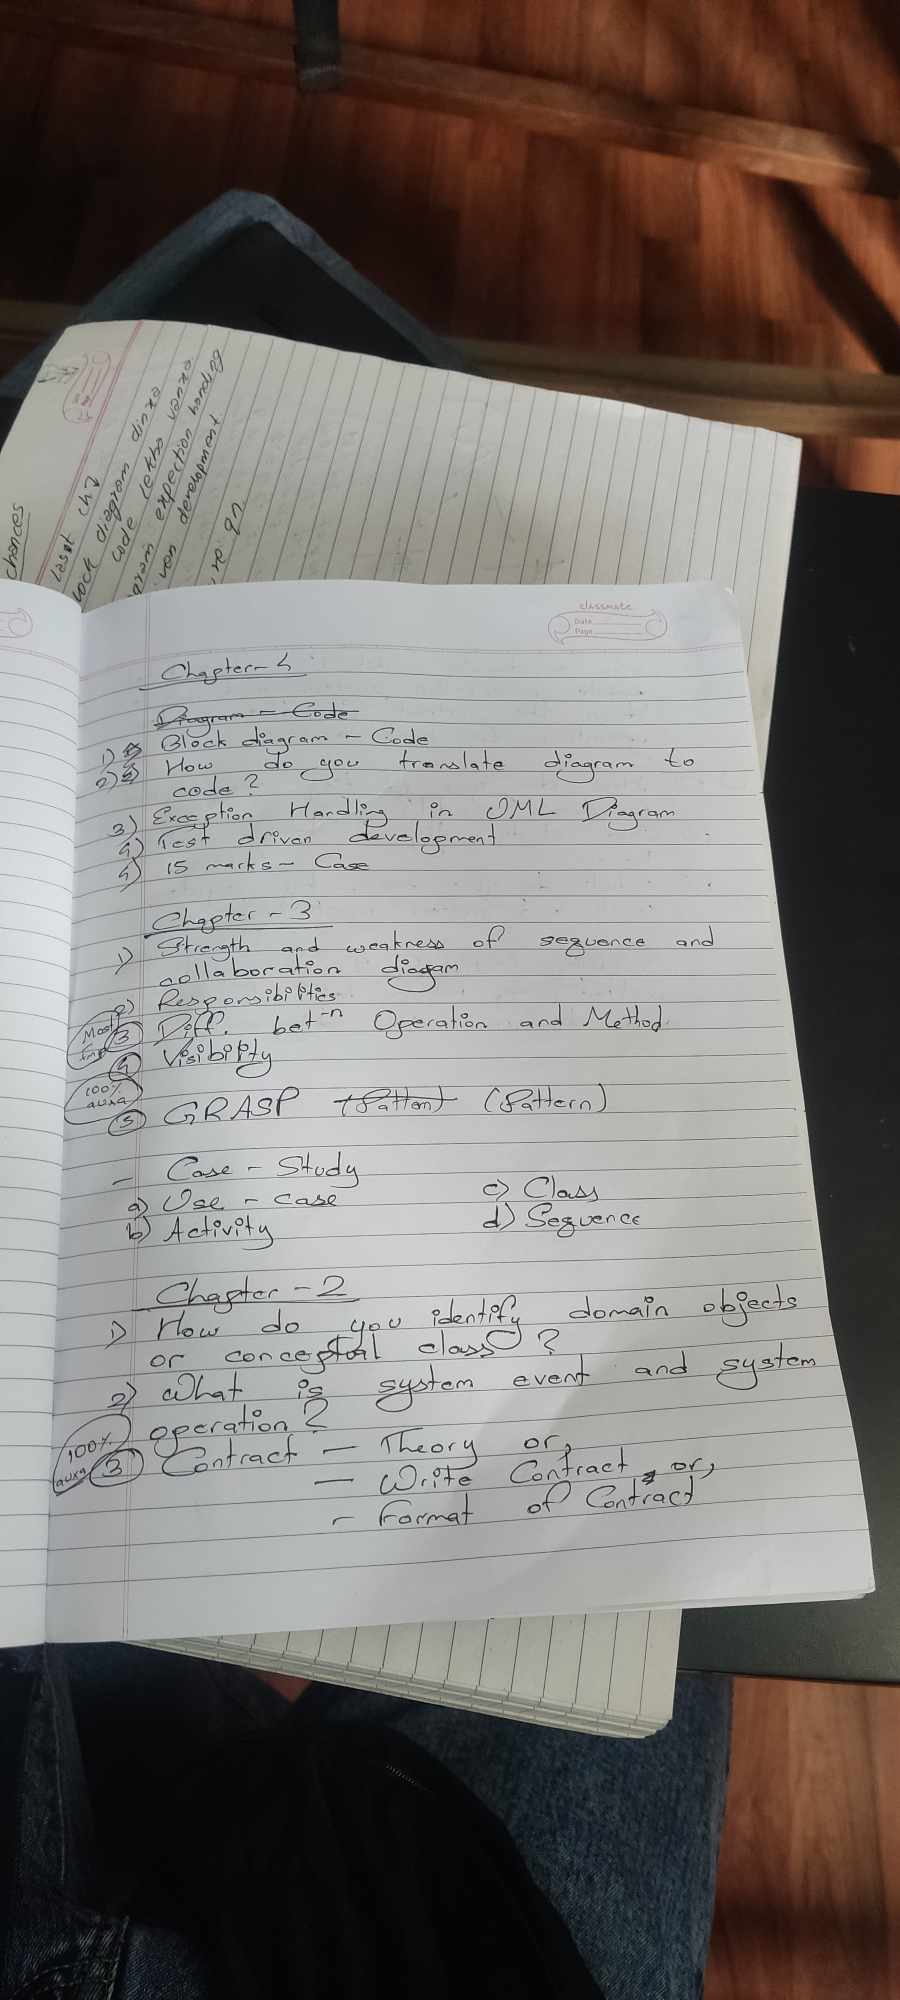 chances
Lasst ch
diagram dinxa
code lekha vanxa
expection handing
development
qn
classmate
Date
Page
Chapter-4
Diagram - Code
1) Block diagram - Code
2) How do you translate diagram to
code?
3) Exception Handling in UML Diagram
4) Test driven development
5) 15 marks - Case
Chapter - 3
1) Strength and weakness of sequence and
collaboration diagam
2) Responsibilities
Most Imp 3) Diff. bet-n Operation and Method
4) Visibility
100% auxa
5) GRASP (Patton) (Pattern)
- Case - Study
a) Use - case c) Class
b) Activity d) Sequence
Chapter - 2
1) How do you identify domain objects
or conceptual class?
2) What is system event and system
operation?
100% auxa 3) Contract - Theory or,
- Write Contract, or,
- Format of Contract